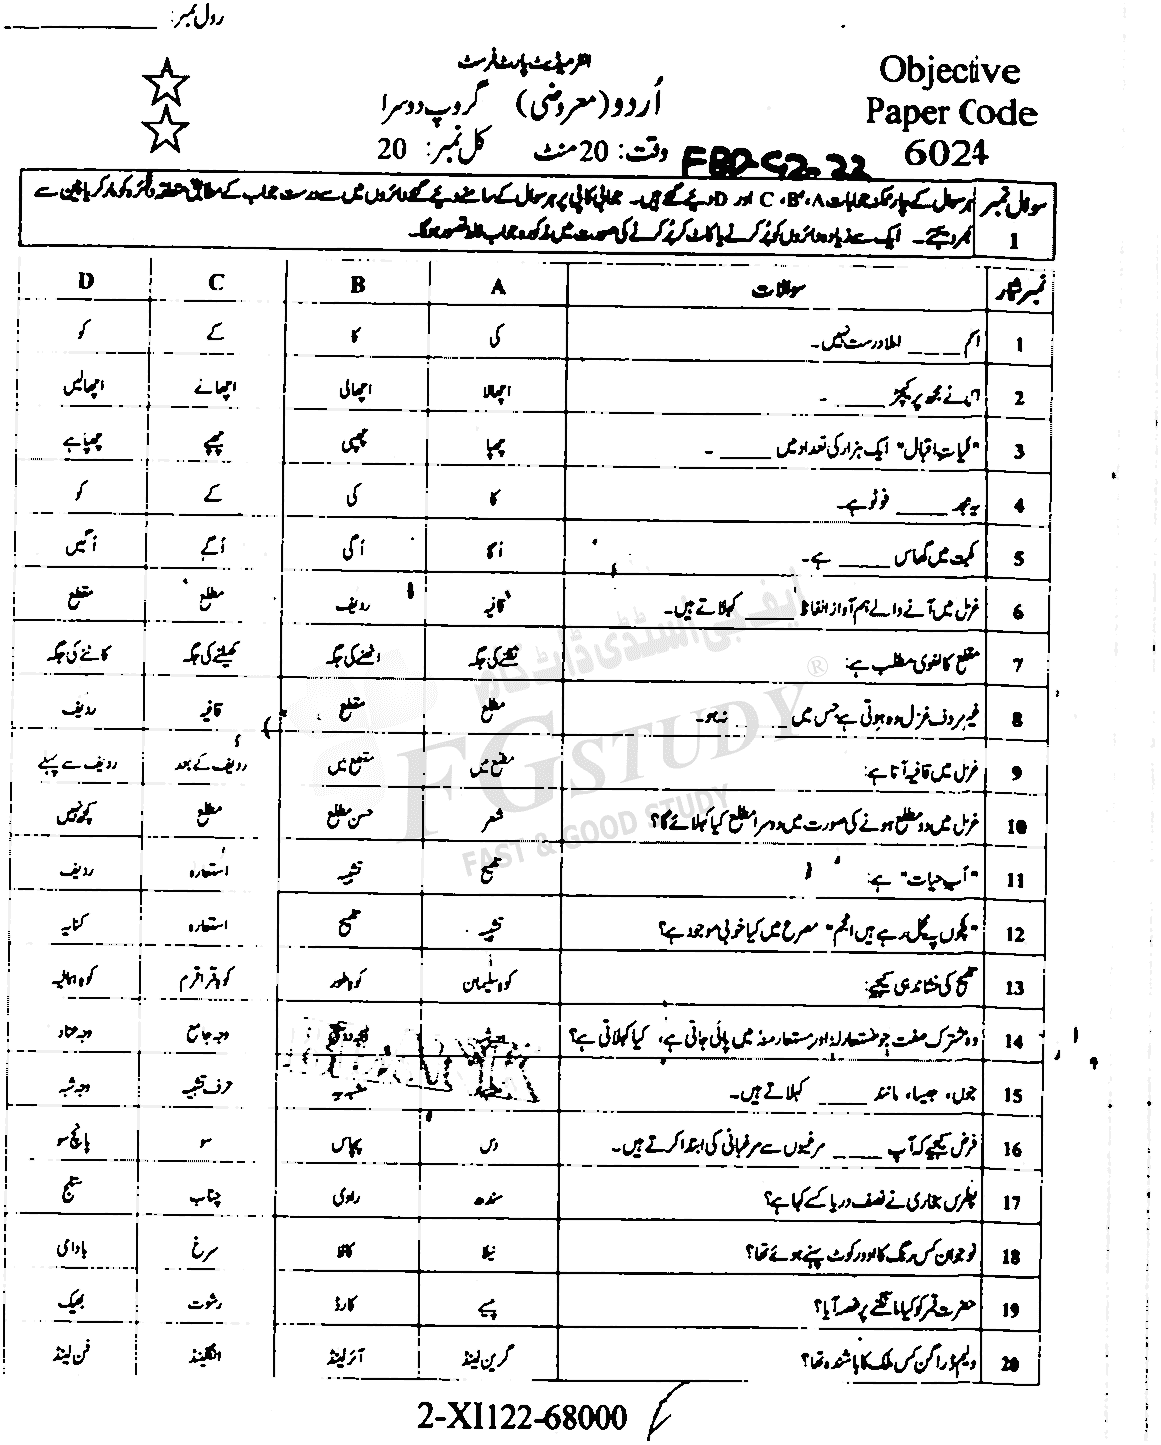 رول نمبر: ____________
انٹرمیڈیٹ پارٹ فرسٹ
Objective
اُردو (معروضی) گروپ دوسرا
Paper Code
وقت: 20 منٹ کل نمبر: 20
6024
FBD-G2-22
سوال نمبر 1
ہر سوال کے چار ممکنہ جوابات A، B، C اور D دیئے گئے ہیں۔ جوابی کاپی پر ہر سوال کے سامنے دیئے گئے دائروں میں سے درست جواب کے مطابق متعلقہ دائرہ کو مارکر یا پین سے
بھر دیجئے۔ ایک سے زیادہ دائروں کو پُر کرنے یا کاٹ کر پُر کرنے کی صورت میں مذکورہ جواب غلط تصور ہوگا۔
نمبر شمار سوالات A B C D
1 اسم ____ املا درست نہیں۔ کی کا کے کو
2 اس نے مجھ پر کیچڑ ____ ۔ اچھالا اچھالی اچھالے اچھالیں
3 "کلیاتِ اقبال" ایک ہزار کی تعداد میں ____ ۔ چھپا چھپی چھپے چھپا ہے
4 یہ میر ____ فوٹو ہے۔ کا کی کے کو
5 کھیت میں گھاس ____ ہے۔ اُگا اُگی اُگے اُگیں
6 غزل میں آنے والے ہم آواز الفاظ ____ کہلاتے ہیں۔ قافیہ ردیف مطلع مقطع
7 مقطع کا لغوی مطلب ہے: نکلنے کی جگہ اٹھنے کی جگہ کھیلنے کی جگہ کاٹنے کی جگہ
8 غیر مردف غزل وہ ہوتی ہے جس میں ____ نہ ہو۔ مطلع مقطع قافیہ ردیف
9 غزل میں قافیہ آتا ہے: مطلع میں مقطع میں ردیف کے بعد ردیف سے پہلے
10 غزل میں دو مطلع ہونے کی صورت میں دوسرا مطلع کیا کہلائے گا؟ شعر حسن مطلع مطلع کچھ نہیں
11 "آبِ حیات" ہے: تلمیح تشبیہ استعارہ ردیف
12 "پلکوں پے مچل رہے ہیں انجم" مصرع میں کیا خوبی موجود ہے؟ تشبیہ تلمیح استعارہ کنایہ
13 تلمیح کی نشاندہی کیجیے: کوہِ سلیمان کوہِ طور کوہِ قراقرم کوہِ ہمالیہ
14 وہ مشترک صفت جو مستعارلہ اور مستعار منہ میں پائی جاتی ہے، کیا کہلاتی ہے؟ وجہ جامع
15 جوں، جیسا، مانند ____ کہلاتے ہیں۔ حرف تشبیہ وجہ شبہ
16 فرض کیجیے کہ آپ ____ مرغیوں سے مرغبانی کی ابتدا کرتے ہیں۔ دس پچاس سو پانچ سو
17 پطرس بخاری نے نصف دریا کسے کہا ہے؟ سندھ راوی چناب ستلج
18 نوجوان کس رنگ کا اوورکوٹ پہنے ہوئے تھا؟ نیلا کالا سرخ بادامی
19 حضرت قمر کو کیا مانگنے پر غصہ آیا؟ پیسے کارڈ رشوت بھیک
20 ولیم ڈراگن کس ملک کا باشندہ تھا؟ گرین لینڈ آئرلینڈ انگلینڈ فن لینڈ
ایف جی اسٹڈی ڈاٹ کام
FG STUDY ®
FAST & GOOD STUDY
2-XI122-68000